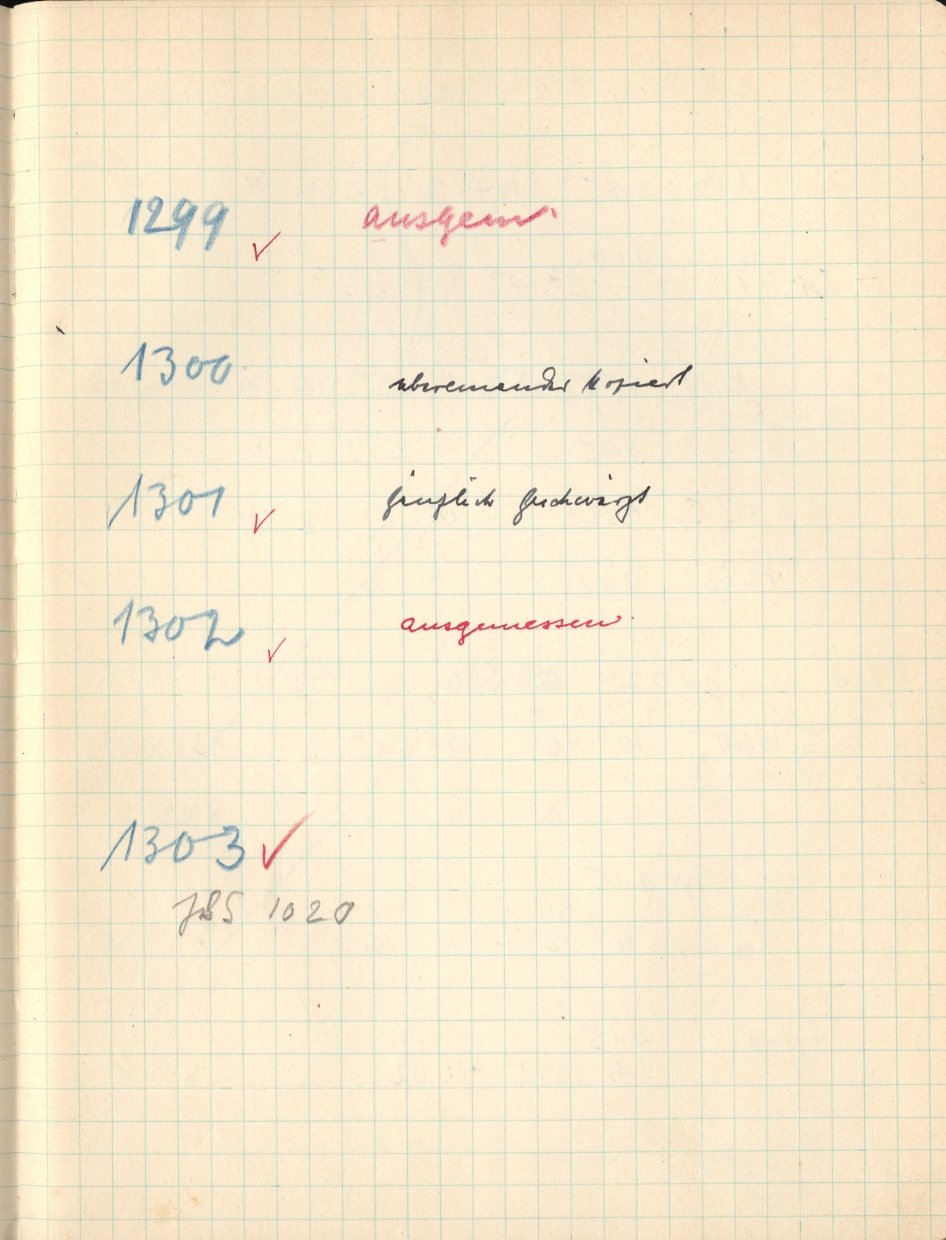 1299 ✓ ausgem.
1300 übereinander kopiert
1301 ✓ gänzlich geschwärzt
1302 ✓ ausgemessen
1303 ✓
1020